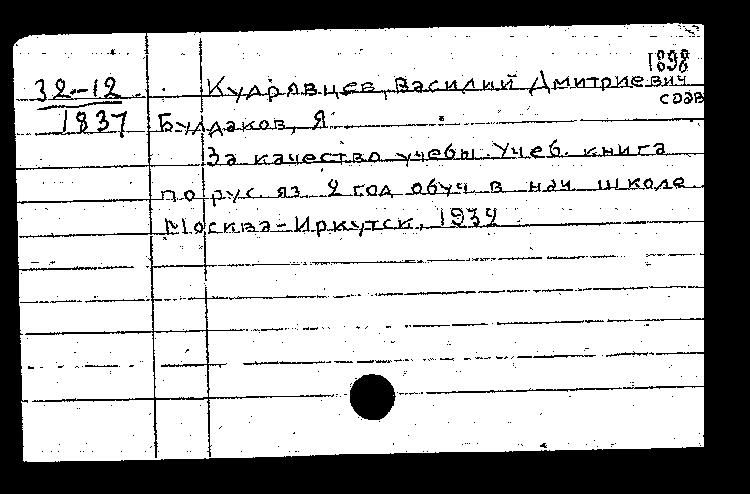 1898
32-12 Кудрявцев, Василий Дмитриевич
соав
1837 Булдаков, Я.
За качество учебы. Учеб. книга
по рус. яз. 2 год обуч в нач школе
Москва-Иркутск, 1932